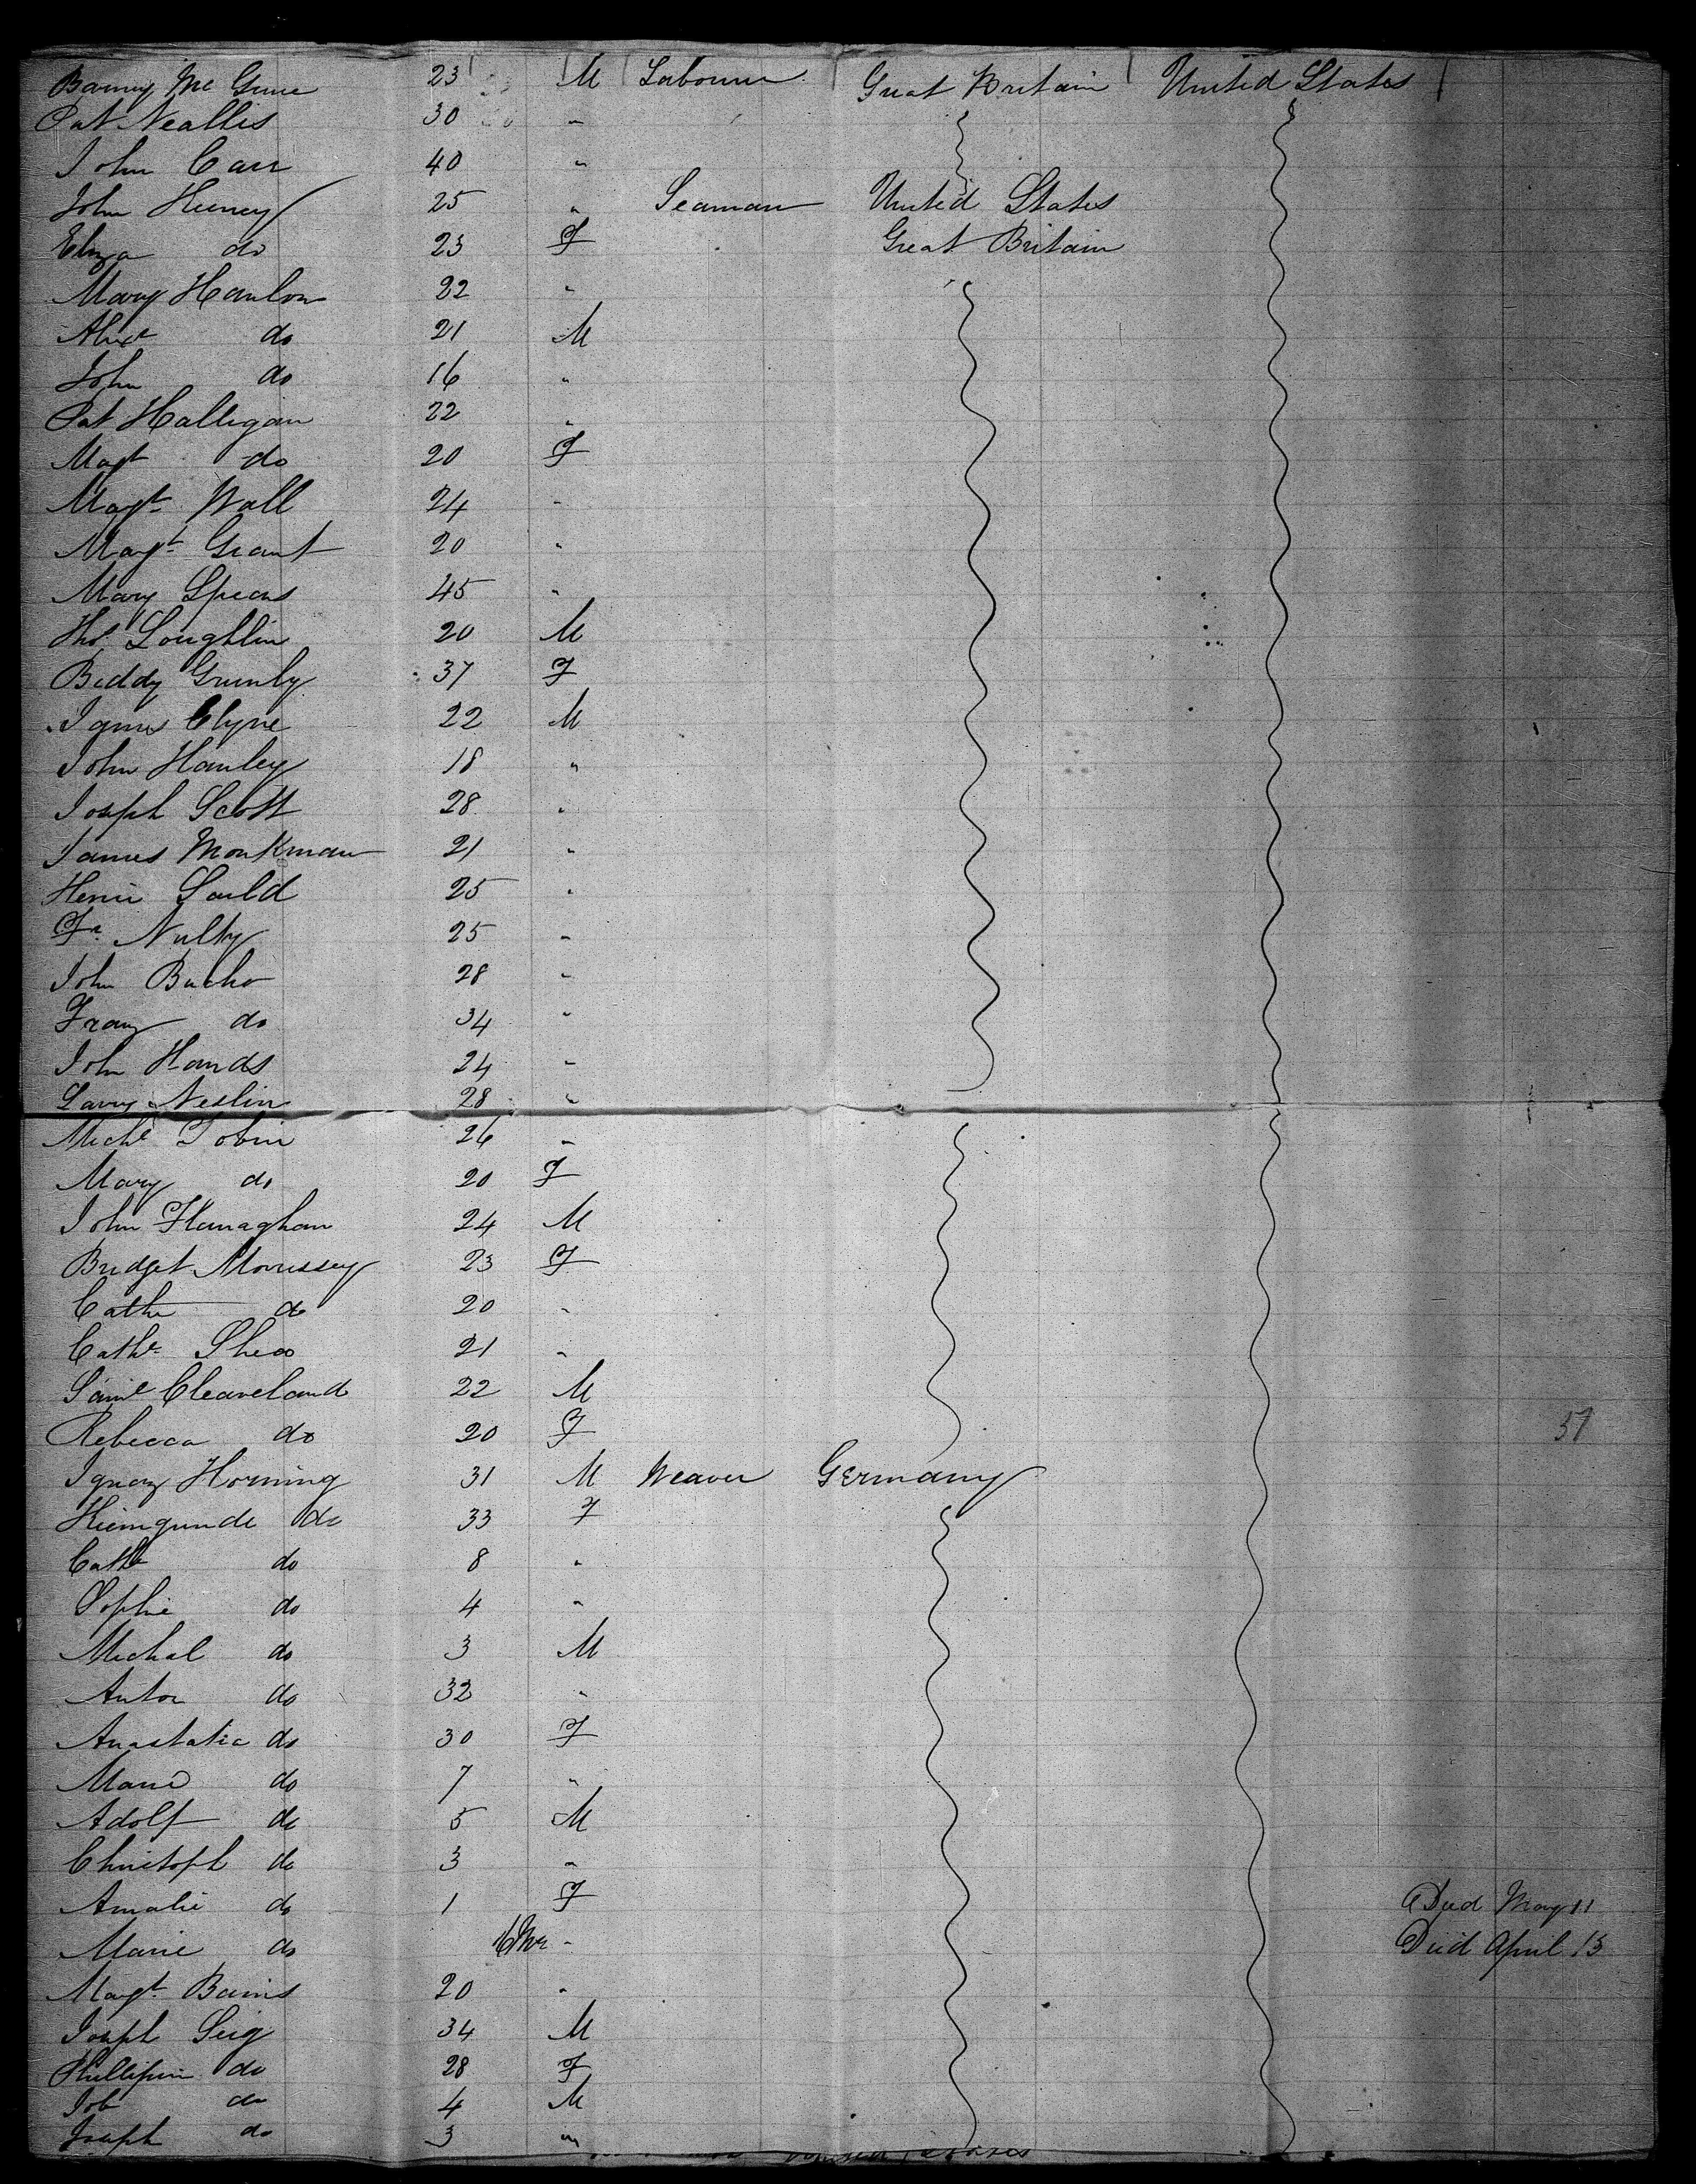 Barney Mc Guire 23 M Labourer Great Britain United States
Pat Neallis 30 "
John Carr 40 "
John Heeney 25 " Seaman United States
Eliza do 23 F Great Britain
Mary Hanlon 22 "
Alexr do 21 M
John do 16 "
Pat Halligan 22 "
Magt do 20 F
Magt Wall 24 "
Margt Grant 20 "
Mary Spears 45 "
Thos Loughlin 20 M
Biddy Grumly 37 F
James Clyne 22 M
John Hanley 18 "
Joseph Scott 28 "
James Monkman 21 "
Henri Sauld 25 "
Fr Nulty 25 "
John Bucho 28 "
Franz do 34 "
John Hands 24 "
Larry Neslin 28 "
Michl Tobin 26 "
Mary do 20 F
John Flanaghan 24 M
Bridget Morrissey 23 F
Cathe do 20 "
Cathe Shea 21 "
Saml Cleaveland 22 M
Rebecca do 20 F 57
Ignaz Horning 31 M Weaver Germany
do 33 F
Cathe do 8 "
Sophie do 4 "
Michal do 3 M
Anton do 32 "
Anastatia do 30 F
Marie do 7 "
Adolf do 5 M
Christoph do 3 "
Amalie do 1 F Died May 11
Marie do " Died April 13
Margt Bains 20 "
Joseph Seig 34 M
Phillipin do 28 F
Job do 4 M
Joseph do 3 "